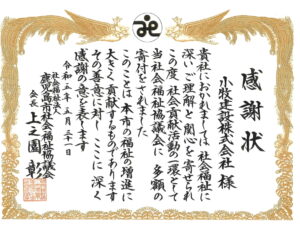 感謝状
小牧建設株式会社 様
貴社におかれましては 社会福祉に
深いご理解と関心を寄せられ
この度 社会貢献活動の一環として
当社会福祉協議会に 多額の
寄付をされました
このことは 本市の福祉の増進に
大きく貢献するものであります
その善意に対し ここに 深く
感謝の意を表します
令和五年五月三十一日
社会福祉法人
鹿児島市社会福祉協議会
会長 上之園 彰